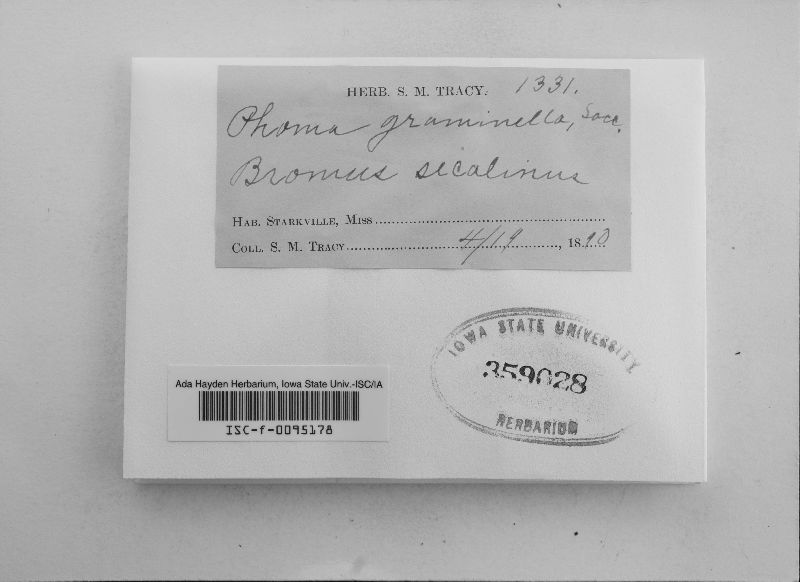 HERB. S. M. TRACY. 1331.
Phoma graminella, Sacc.
Bromus secalinus
HAB. STARKVILLE, MISS
COLL. S. M. TRACY 4/19, 1890
IOWA STATE UNIVERSITY
359028
HERBARIUM
Ada Hayden Herbarium, Iowa State Univ.-ISC/IA
ISC-f-0095178